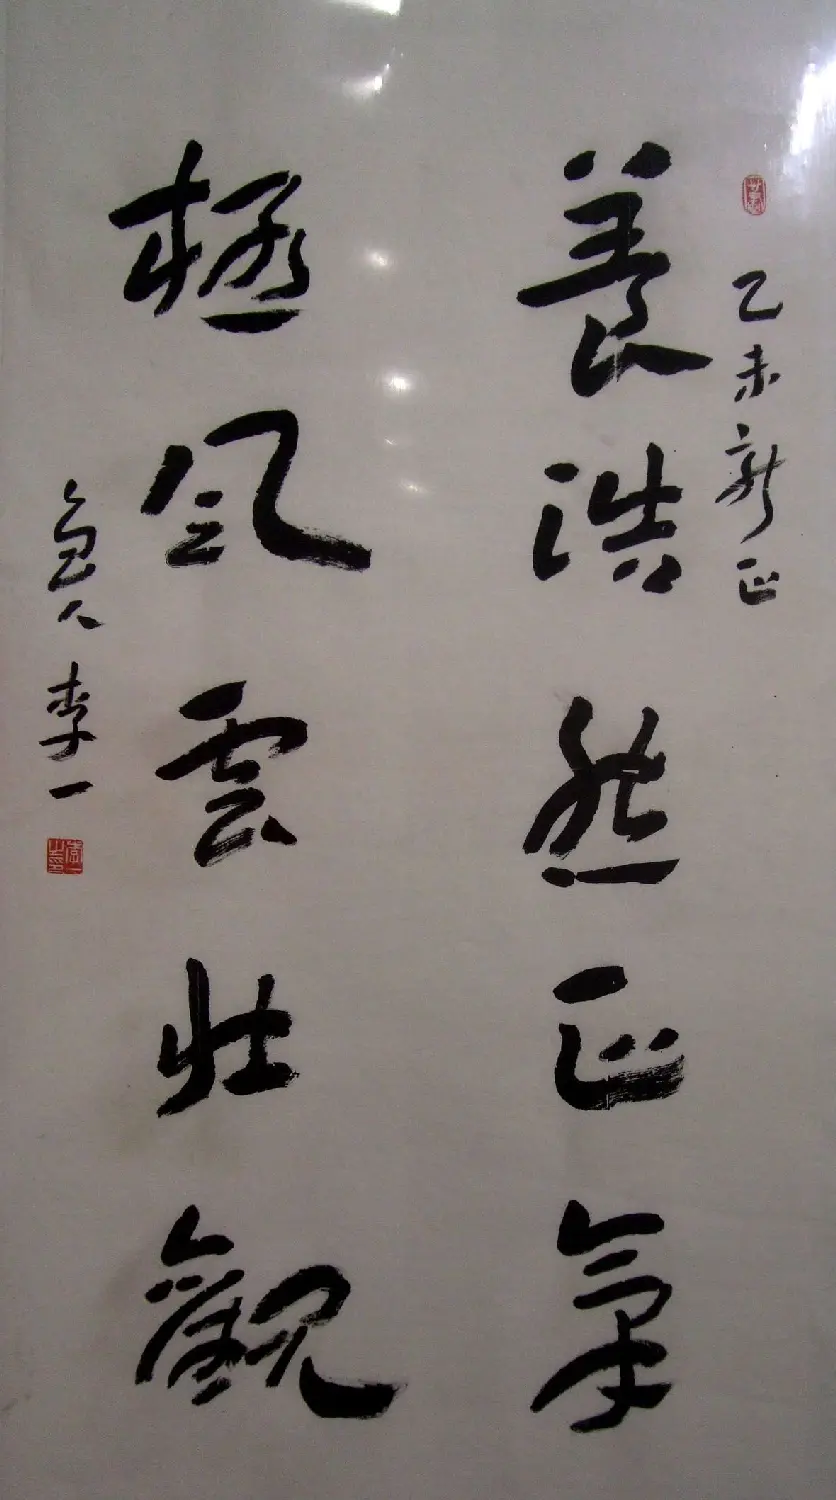 乙未新正
養浩然正氣
極風雲壯觀
魯人李一